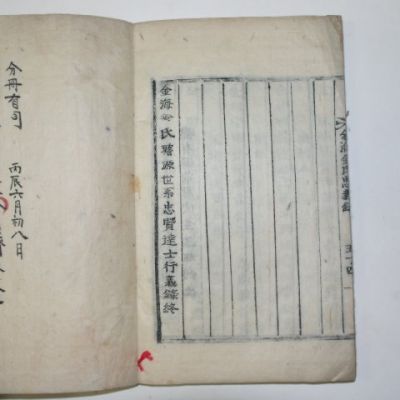 金海金氏忠義錄 五十四
金海金氏璿源世系忠賢達士行義錄終
丙辰六月初八日
分冊有司